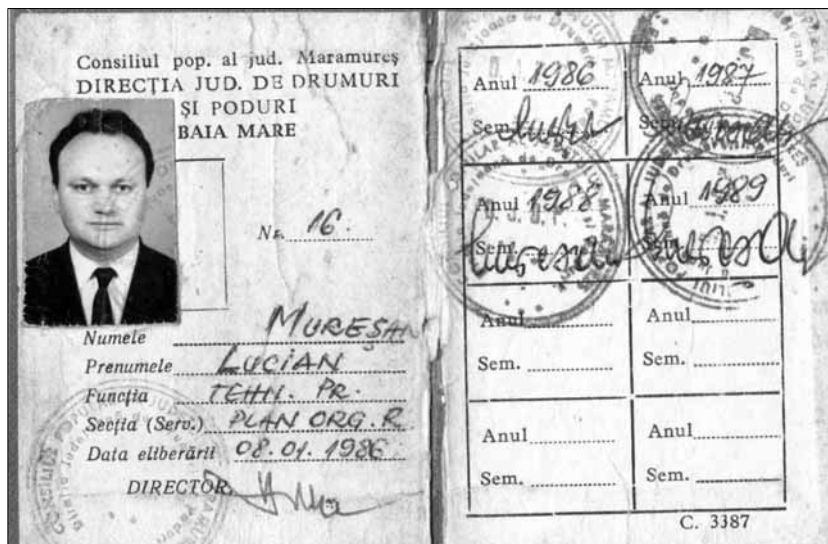 Consiliul pop. al jud. Maramureș
DIRECȚIA JUD. DE DRUMURI
ȘI PODURI
BAIA MARE
Nr. 16.
Numele MUREȘAN
Prenumele LUCIAN
Funcția TEHN. PR.
Secția (Serv.) PLAN ORG. R
Data eliberării 08.01.1986
DIRECTOR,
Anul 1986 Anul 1987
Sem. Sem.
Anul 1988 Anul 1989
Sem. Sem.
Anul Anul
Sem. Sem.
Anul Anul
Sem. Sem.
C. 3387